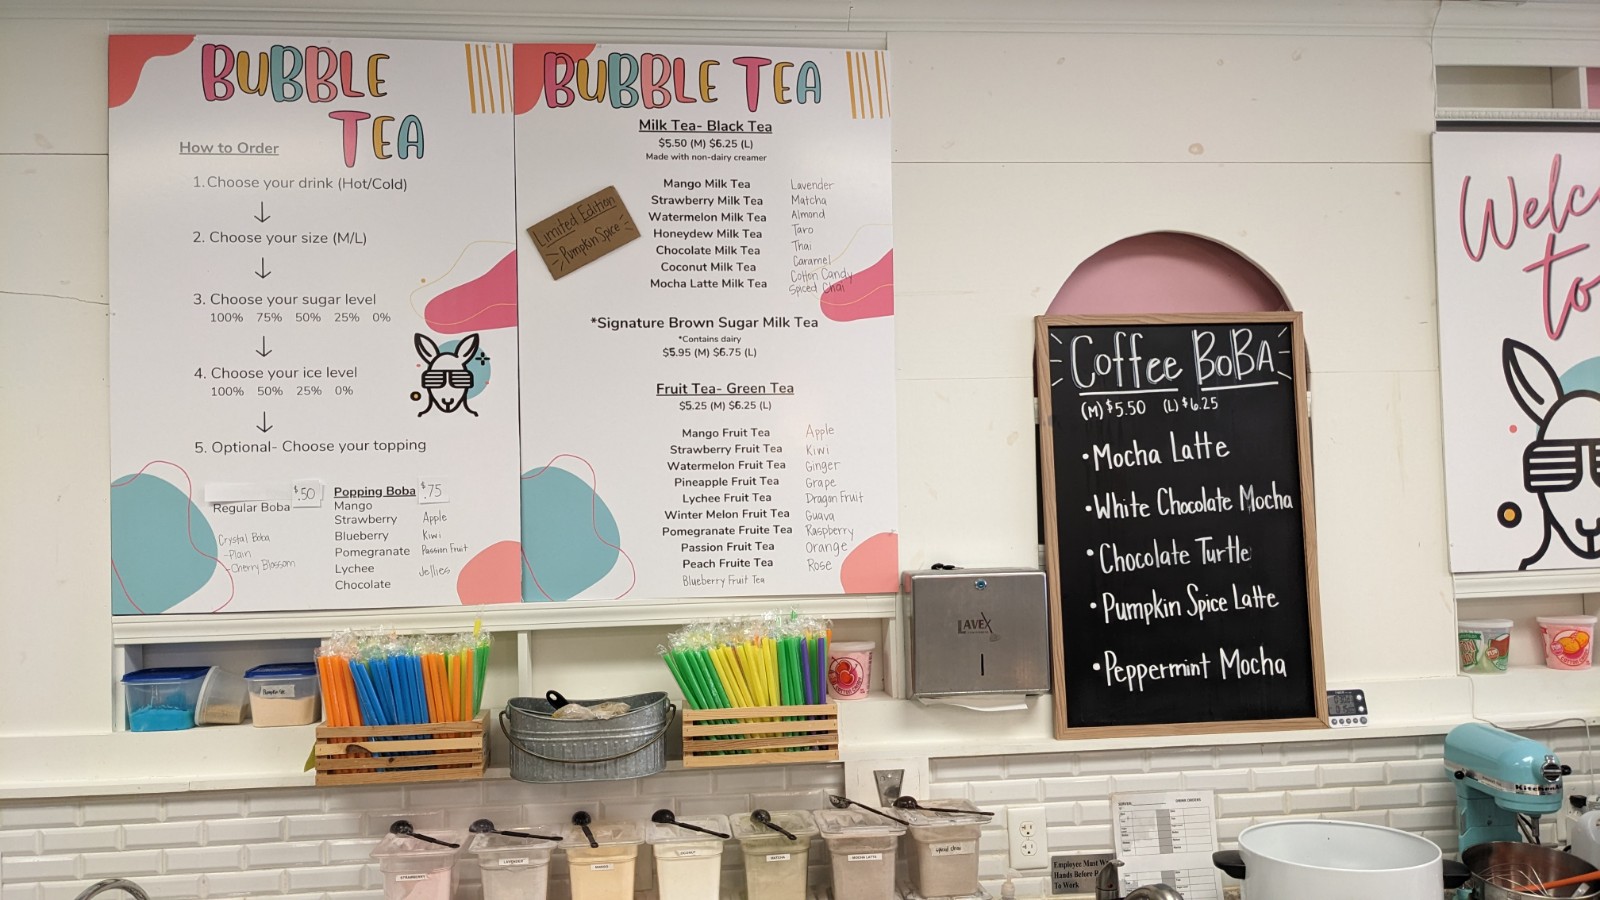 BUBBLE
TEA
How to Order
1. Choose your drink (Hot/Cold)
2. Choose your size (M/L)
3. Choose your sugar level
100% 75% 50% 25% 0%
4. Choose your ice level
100% 50% 25% 0%
5. Optional- Choose your topping
$.50
Regular Boba
Crystal Boba
-Plain
-Cherry Blossom
Popping Boba $.75
Mango
Strawberry
Blueberry
Pomegranate
Lychee
Chocolate
Apple
Kiwi
Passion Fruit
Jellies
BUBBLE TEA
Milk Tea- Black Tea
$5.50 (M) $6.25 (L)
Made with non-dairy creamer
Limited Edition
Pumpkin Spice
Mango Milk Tea
Strawberry Milk Tea
Watermelon Milk Tea
Honeydew Milk Tea
Chocolate Milk Tea
Coconut Milk Tea
Mocha Latte Milk Tea
Lavender
Matcha
Almond
Taro
Thai
Caramel
Cotton Candy
Spiced Chai
*Signature Brown Sugar Milk Tea
*Contains dairy
$5.95 (M) $6.75 (L)
Fruit Tea- Green Tea
$5.25 (M) $6.25 (L)
Mango Fruit Tea
Strawberry Fruit Tea
Watermelon Fruit Tea
Pineapple Fruit Tea
Lychee Fruit Tea
Winter Melon Fruit Tea
Pomegranate Fruite Tea
Passion Fruit Tea
Peach Fruite Tea
Blueberry Fruit Tea
Apple
Kiwi
Ginger
Grape
Dragon Fruit
Guava
Raspberry
Orange
Rose
LAVEX
Coffee BoBA
(M) $5.50 (L) $6.25
•Mocha Latte
•White Chocolate Mocha
•Chocolate Turtle
•Pumpkin Spice Latte
•Peppermint Mocha
to
KitchenAid
STRAWBERRY
LAVENDER
MANGO
COCONUT
MATCHA
MOCHA LATTE
Spiced Chai
Employee Must
Hands Before
To Work